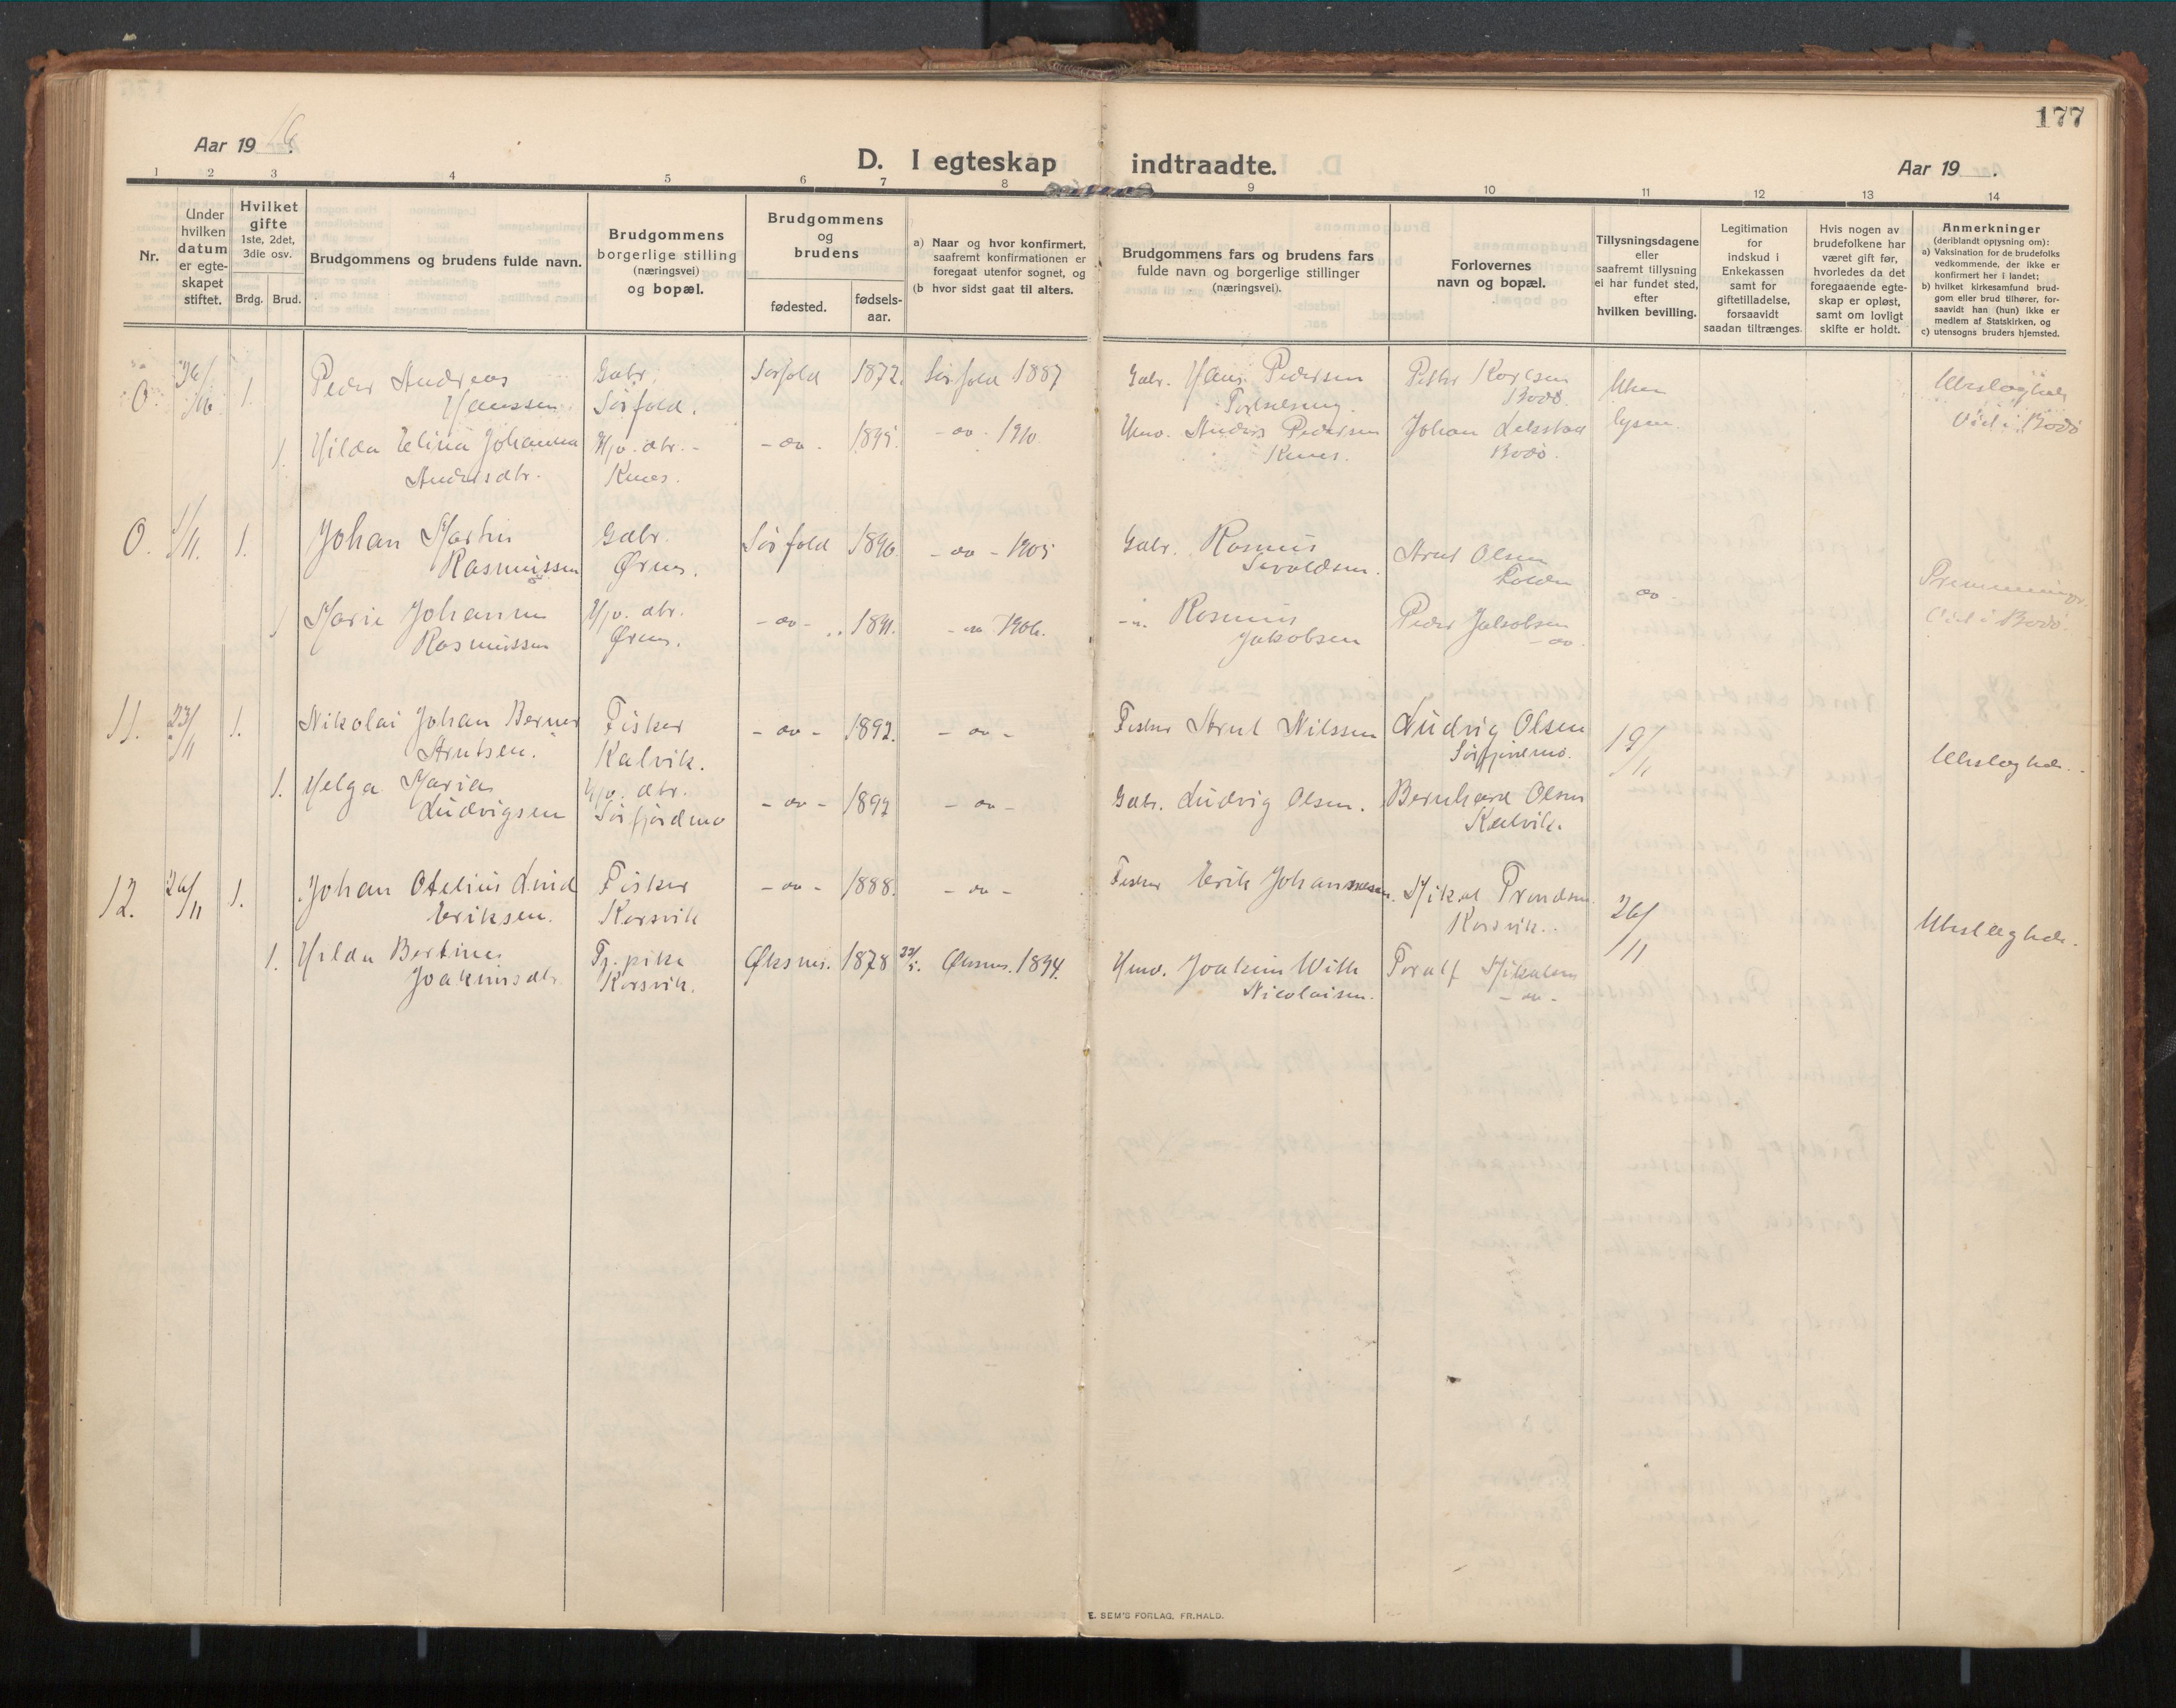 177
Aar 19 16.
D. I egteskap indtraadte.
Aar 19 .
1 2 3 4 5 6 7 8 9 10 11 12 13 14
Nr.
Under hvilken datum er egte-skapet stiftet.
Hvilket gifte
1ste, 2det, 3die osv.
Brdg. Brud.
Brudgommens og brudens fulde navn.
Brudgommens borgerlige stilling (næringsvei) og bopæl.
Brudgommens og brudens
fødested.
fødsels-aar.
a) Naar og hvor konfirmert, saafremt konfirmationen er foregaat utenfor sognet, og
(b hvor sidst gaat til alters.
Brudgommens fars og brudens fars fulde navn og borgerlige stillinger (næringsvei).
Forlovernes navn og bopæl.
Tillysningsdagene eller saafremt tillysning ei har fundet sted, efter hvilken bevilling.
Legitimation for indskud i Enkekassen samt for giftetilladelse, forsaavidt saadan tiltrænges.
Hvis nogen av brudefolkene har været gift før, hvorledes da det foregaaende egte-skap er opløst, samt om lovligt skifte er holdt.
Anmerkninger
(deriblandt opjysning om):
a) Vaksination for de brudefolks vedkommende, der ikke er konfirmert her i landet;
b) hvilket kirkesamfund brud-gom eller brud tilhører, for-saavidt han (hun) ikke er medlem af Statskirken, og
c) utensogns bruders hjemsted.
0. 1. Peder Andreas Gabr. Sørfold 1872. Sørfold 1887 Gabr. Hans Pedersen Peder Karlsen Uten
Hanssen Sørfold. Bodø
1. Hilda Elina Johanna - do - - do - 1910 Anders Pedersen Johan lysn.
Andersdtr. Knes. Knes. Bodø.
Viet i Bodø
0. 1/11. 1. Johan Martin Gabr. Sørfold 1890. - do - 1905 Gabr. Rasmus Arnt Olsen
Rasmussen Ørnes. Sivaldsen. do
1 Marie Johanne Ørnes. - do - 1891. - do 1906. Rasmus Peder Jakobsen Viet i Bodø.
Rasmussen Jakobsen - do
11. 23/11 1. Nikolai Johan Berner Fisker - do - 1892. - do - Fisker Arnt Nilssen Ludvig Olsen 19/11
Arntsen. Kalvik. Sørfjordmo.
1. Helga Maria Sørfjordmo - do - 1892 - do - Gabr. Ludvig Olsen. Bernhard Olsen
Ludvigsen Kalvik.
12. 26/11 1. Johan Otelius Lund Fisker - do - 1888. - do - Fisker Erik Johannesen. Mikal Trondsen 26/11
Eriksen. Korsvik Korsvik.
1. Hilda Bertine Tj. pike Øksnes. 1878 Øksnes. 1894. Joakim With Toralf Mikalsen
Joakimsdtr. Korsvik. Nicolaisen. - do -
E. SEM'S FORLAG, FR.HALD.